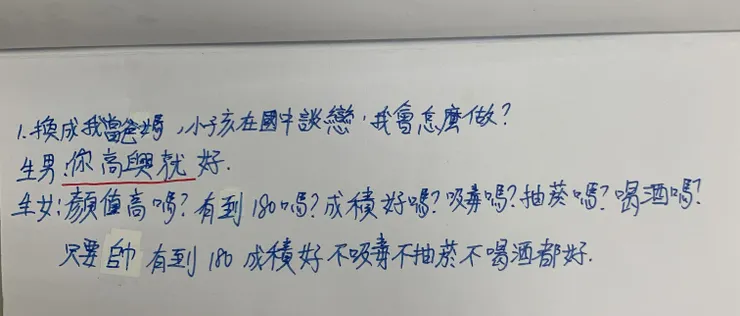 1.換成我當爸媽,小孩在國中談戀,我會怎麼做?
生男:你高興就好.
生女:顏值高嗎?有到180嗎?成積好嗎?吸毒嗎?抽菸嗎?喝酒嗎?
只要帥有到180成積好不吸毒不抽菸不喝酒都好.